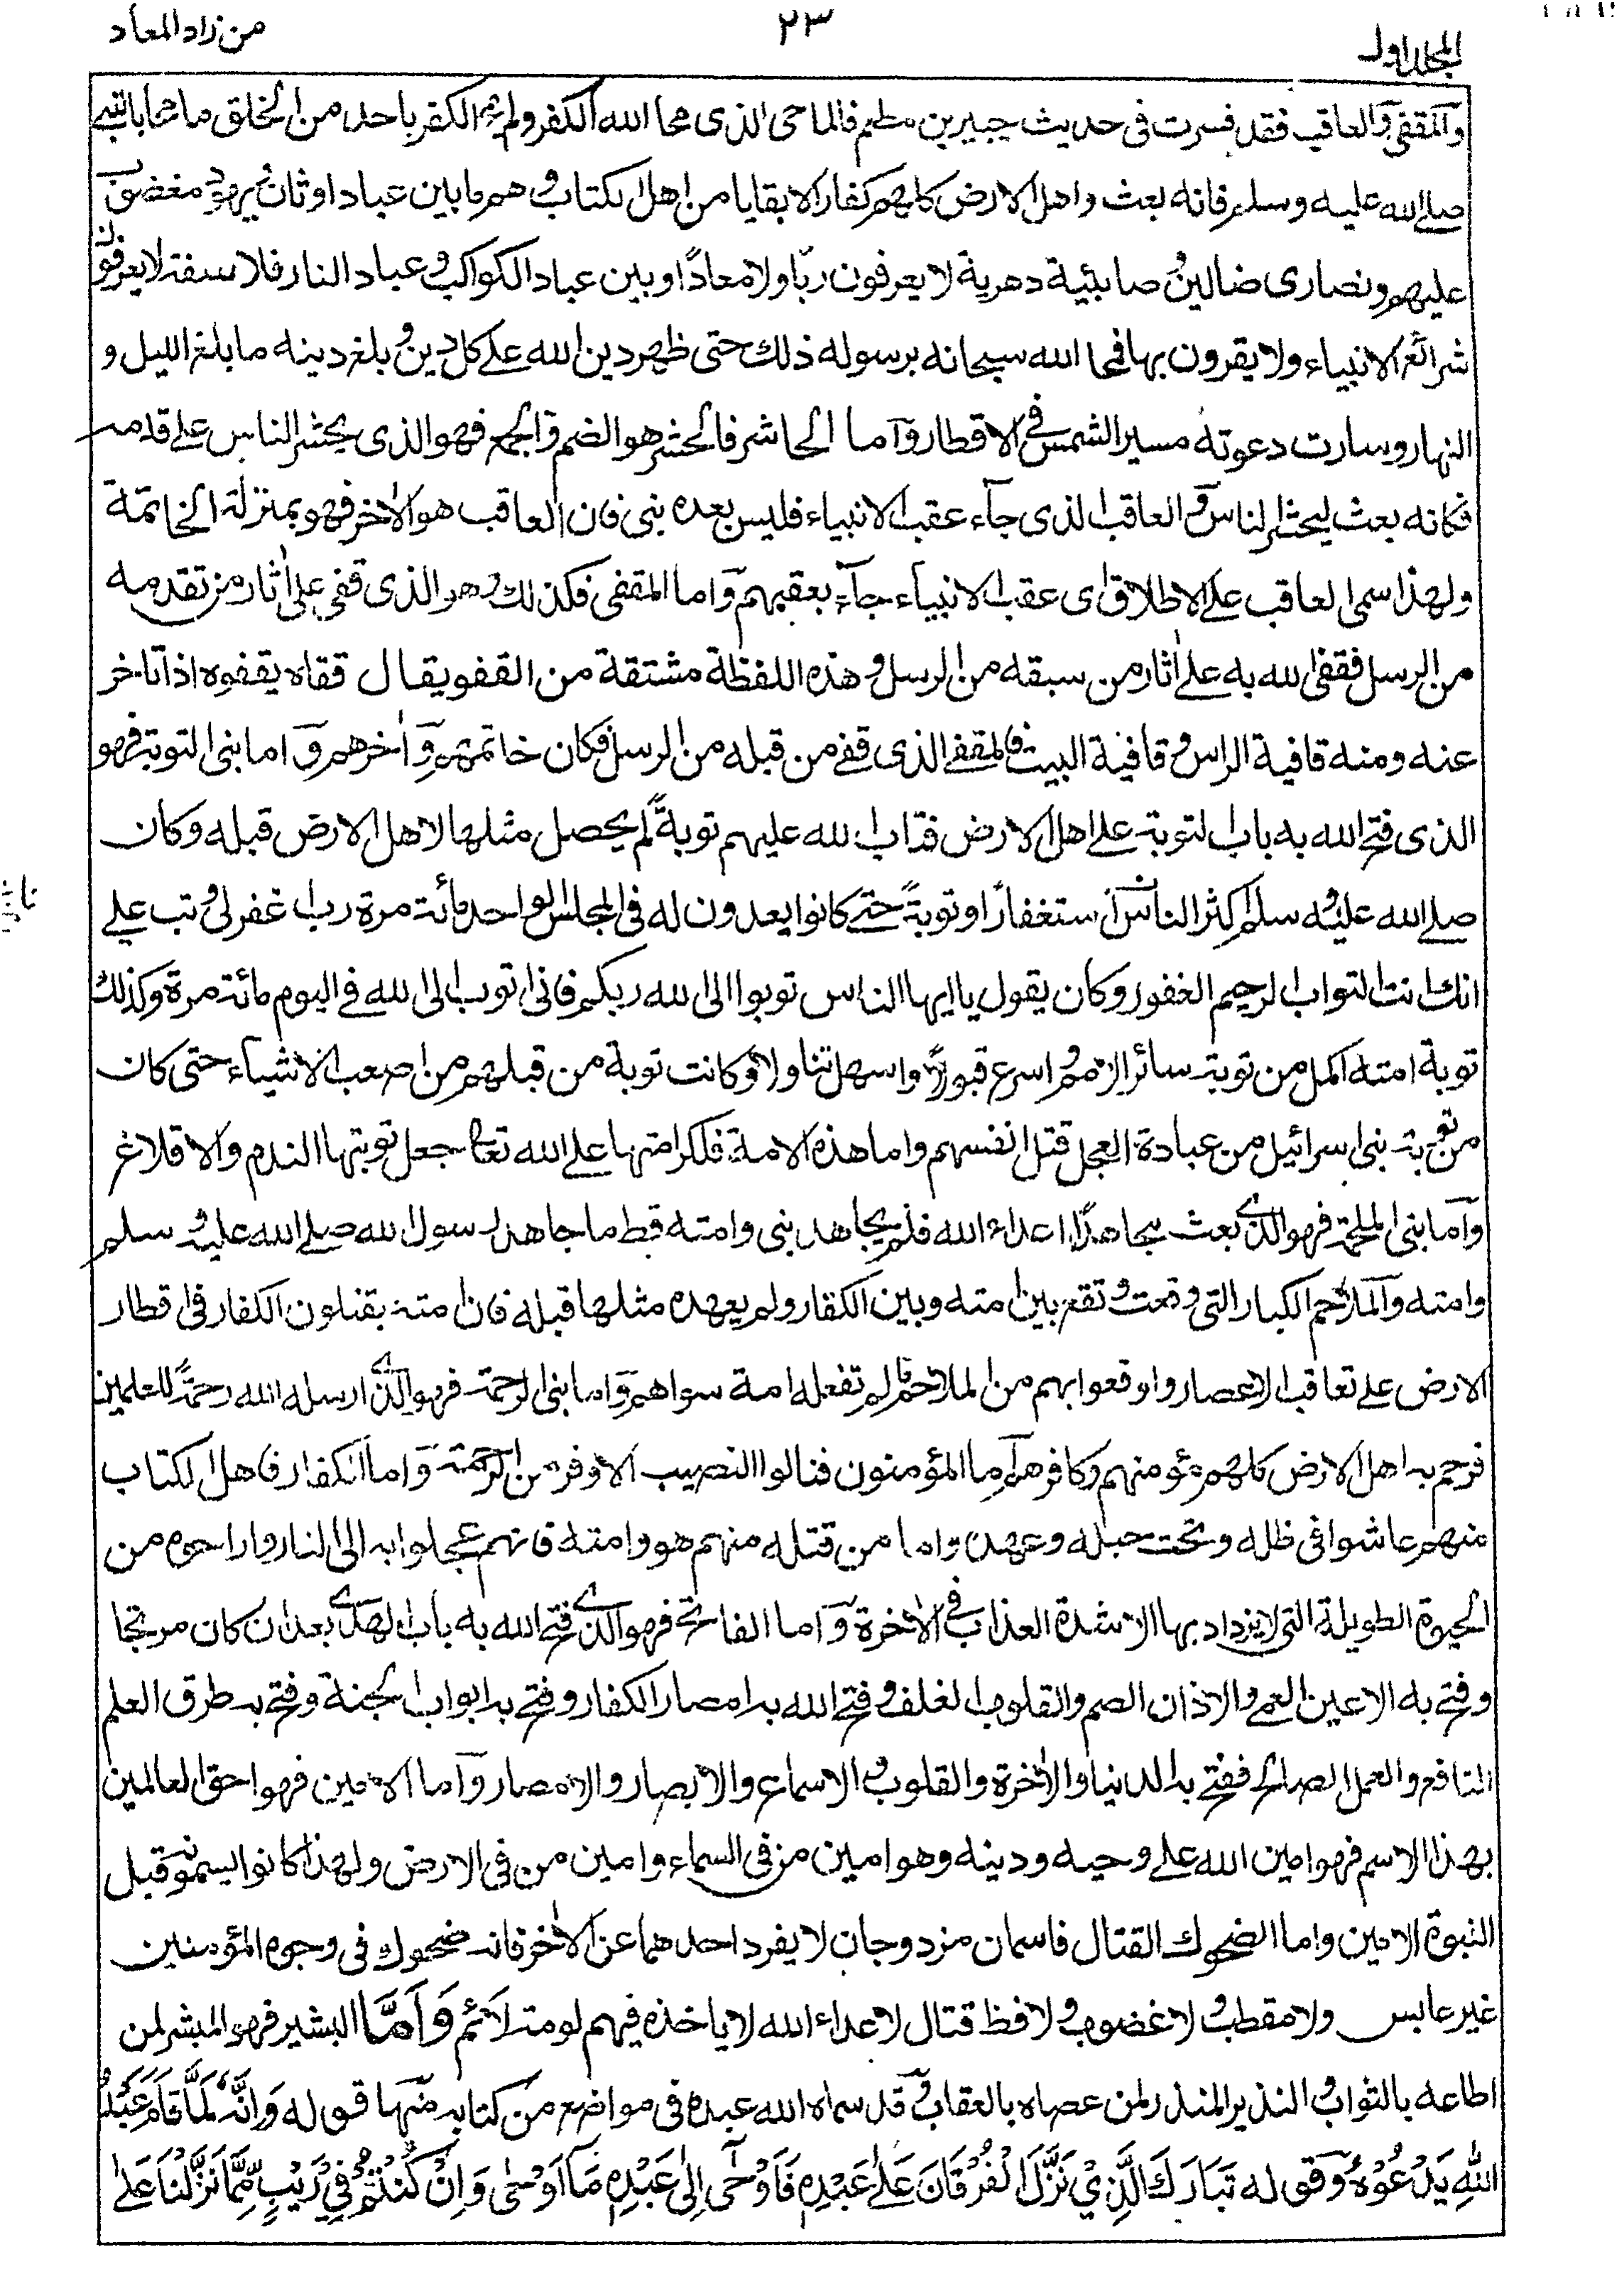 المجلد اول
٢٣
من زاد المعاد
والمقفى والعاقب فقد فسرت فى حديث جبيربن مطعم فالماحى الذى محا الله به الكفر ولم يمح الكفر باحد من الخلق ما محا بالنبى
صلے الله عليه وسلم فانه بعث واهل الارض كلهم كفار الا بقايا من اهل الكتاب وهم ما بين عباد اوثان ويهود مغضوب
عليهم ونصارى ضالين وصابئية دهرية لا يعرفون ربّا ولا معادًا وبين عباد الكواكب وعباد النار فلاسفة لا يعرفون
شرائع الانبياء ولا يقرون بها فمحا الله سبحانه برسوله ذلك حتى ظهر دين الله علے كل دين وبلغ دينه ما بلغ الليل و
النهار وسارت دعوته مسير الشمس فى الاقطار وآما الحاشر فالحشر هو الضم والجمع فهو الذى يحشر الناس علے قدمه
فكانه بعث ليحشر الناس والعاقب الذى جآء عقب الانبياء فليس بعده نبى فان العاقب هو الاٰخر فهو بمنزلة الخاتمة
ولهذا سمى العاقب علے الاطلاق اى عقب الانبياء جآء بعقبهم وآما المقفى فكذلك وهو الذى قفى على اٰثار من تقدمه
من الرسل فقفى الله به علے اٰثار من سبقه من الرسل وهذه اللفظة مشتقة من القفو يقال قفاه يقفوه اذا تاخر
عنه ومنه قافية الراس وقافية البيت فالمقفے الذى قفے من قبله من الرسل فكان خاتمهم وآخرهم وآما نبى التوبة فهو
الذى فتح الله به باب التوبة علے اهل الارض فتاب الله عليهم توبةً لم يحصل مثلها لاهل الارض قبله وكان
صلے الله عليه وسلم اكثر الناس استغفارًا وتوبةً حتے كانوا يعدون له فى المجلس الواحد مائة مرة رب اغفرلى وتب علے
انك انت التواب الرحيم الغفور وكان يقول يا ايها الناس توبوا الى الله ربكم فانى اتوب الى الله فى اليوم مائة مرة وكذلك
توبة امته اكمل من توبة سائر الامم واسرع قبولاً واسهل تناولاً وكانت توبة من قبلهم من اصعب الاشياء حتى كان
من توبة بنى اسرائيل من عبادة العجل قتل انفسهم واما هذه الامة فلكرامتها على الله تعالے جعل توبتها الندم والاقلاع
وآما نبى الملحمة فهو الذى بعث بجهاد اعداء الله فلم يجاهد نبى وامته قط ما جاهد رسول الله صلے الله عليه وسلم
وامته والملاحم الكبار التى وقعت وتقع بين امته وبين الكفار ولم يعهد مثلها قبله فان امته يقتلون الكفار فى اقطار
الارض علے تعاقب الاعصار واوقعوا بهم من الملاحم ما لم تفعله امة سواهم وآما نبى الرحمة فهو الذى ارسله الله رحمةً للعلمين
فرحم به اهل الارض كلهم مؤمنهم وكافرهم آما المؤمنون فنالوا النصيب الاوفر من الرحمة وآما الكفار فاهل الكتاب
منهم عاشوا فى ظله وتحت حبله وعهده واما من قتله منهم هو وامته فانهم عجلوا به الى النار واراحوه من
الحيوة الطويلة التى لا يزداد بها الا شدة العذاب فى الاٰخرة وآما الفاتح فهو الذى فتح الله به باب الهدى بعد ان كان مرتجا
وفتح به الاعين العمى والاذان الصم والقلوب الغلف وفتح الله به امصار الكفار وفتح به ابواب الجنة وفتح به طرق العلم
النافع والعمل الصالح ففتح به الدنيا والاٰخرة والقلوب والاسماع والابصار والامصار وآما الامين فهو احق العالمين
بهذا الاسم فهو امين الله علے وحيه ودينه وهو امين من فى السماء وامين من فى الارض ولهذا كانوا يسمونه قبل
النبوة الامين واما الضحوك القتال فاسمان مزدوجان لا يفرد احدهما عن الاٰخر فانه ضحوك فى وجوه المؤمنين
غير عابس ولا مقطب ولا غضوب ولا فظ قتال لاعداء الله لا ياخذه فيهم لومة لائم وَاَمَّا البشير فهو المبشر لمن
اطاعه بالثواب والنذير المنذر لمن عصاه بالعقاب وقد سماه الله عبده فى مواضع من كتابه منها قوله وَاِنَّهٗ لَمَّا قَامَ عَبْدُ
اللهِ يَدْعُوْهُ وقوله تَبَارَكَ الَّذِىْ نَزَّلَ الْفُرْقَانَ عَلےٰ عَبْدِهٖ فَاَوْحٰى اِلٰى عَبْدِهٖ مَآ اَوْحٰى وَاِنْ كُنْتُمْ فِىْ رَيْبٍ مِّمَّا نَزَّلْنَا عَلےٰ